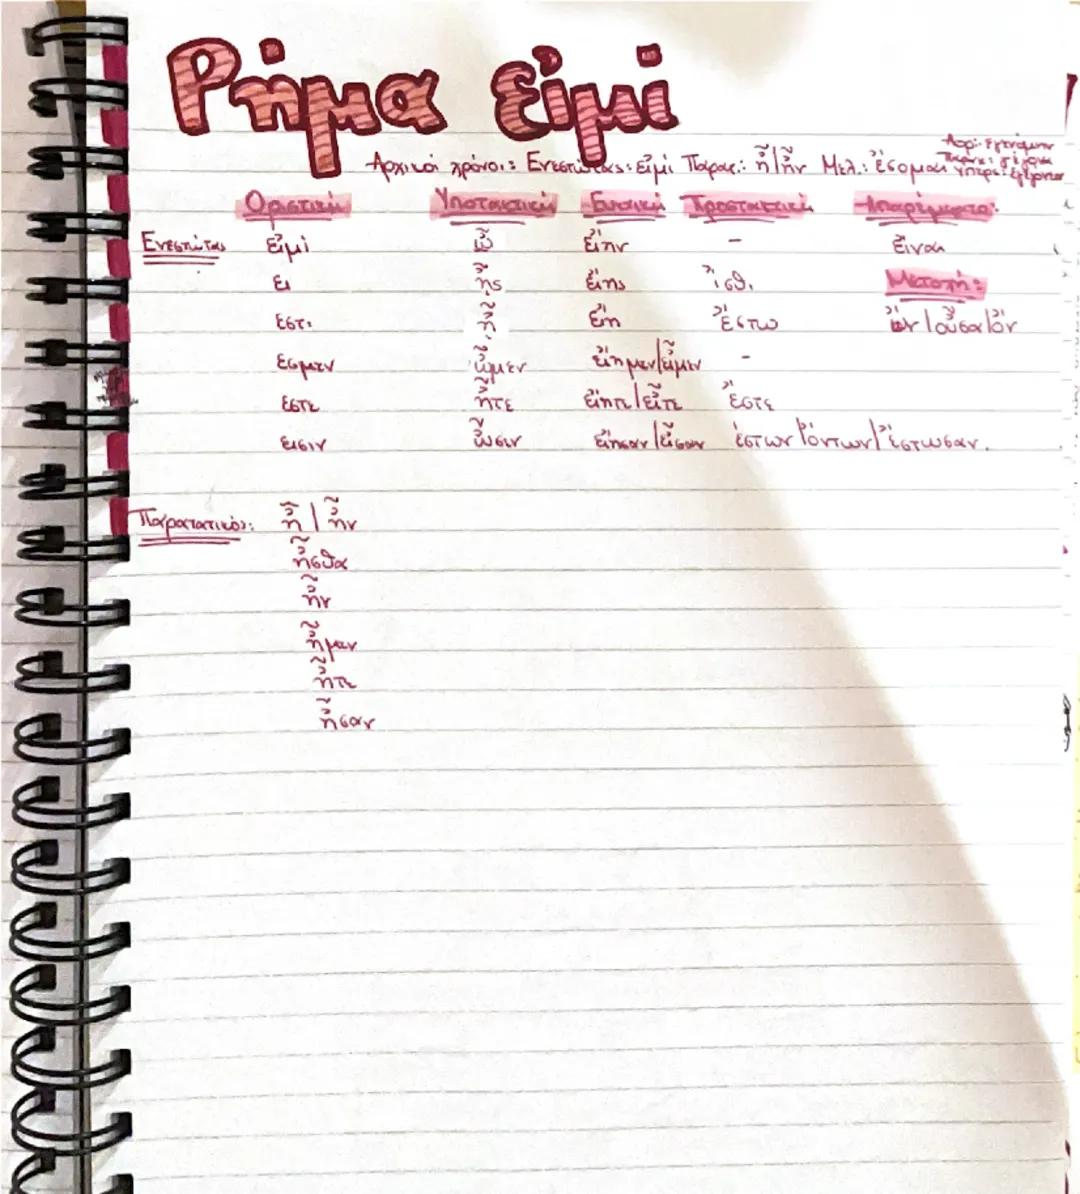 Ρήμα εἰμί
Αορ.: ἐγενόμην
Αρχικοί χρόνοι: Ενεστώτας: εἰμί Παρατ.: ἦ/ἦν Μελ.: ἔσομαι
Οριστική Υποτακτική Ευκτική Προστακτική Απαρέμφατο:
Ενεστώτας εἰμί ὦ εἴην - εἶναι
ει ᾖς εἴης ἴσθι Μετοχή:
εστι ᾖ εἴη ἔστω ὤν/οὖσα/ὄν
εσμεν ὦμεν εἴημεν/εἶμεν -
εστε ἦτε εἴητε/εἶτε ἔστε
εισιν ὦσιν εἴησαν/εἶεν ἔστων/ὄντων/ἔστωσαν.
Παρατατικός: ἦ / ἦν
ἦσθα
ἦν
ἦμεν
ἦτε
ἦσαν